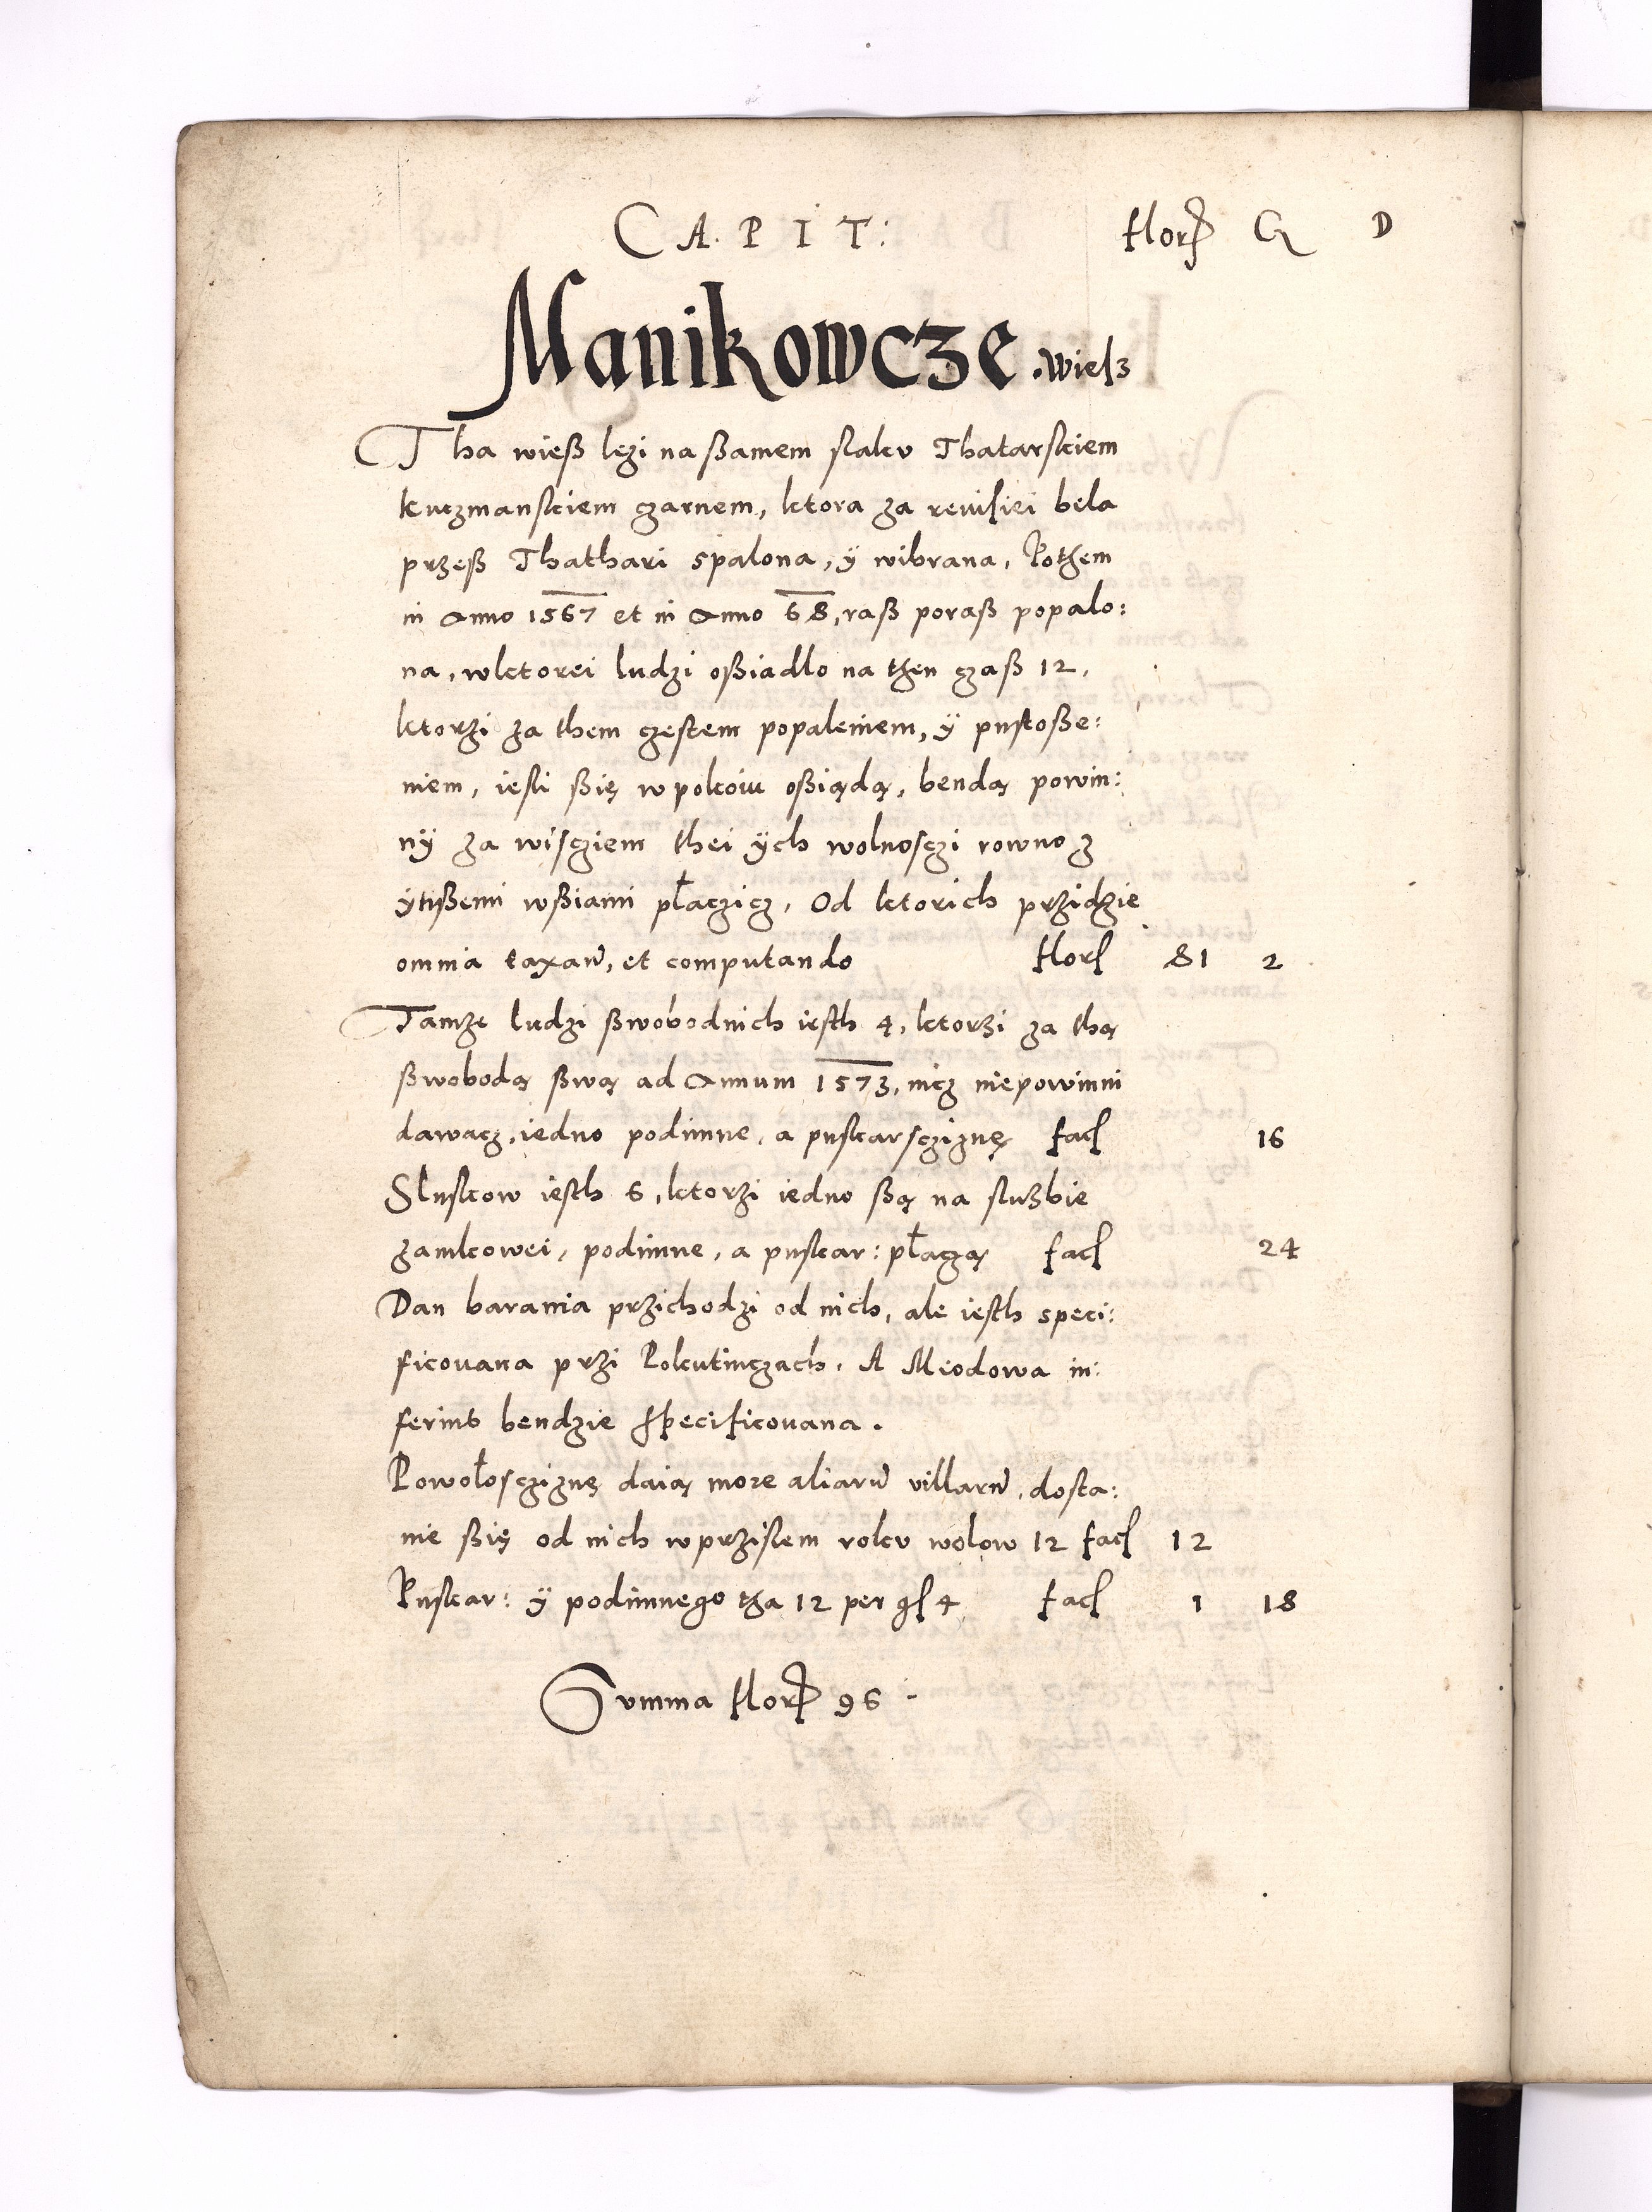 CAPIT: Flor G D
Manikowcze .Wiesz
Tha wieß lezi na ßamem slaku Thatarskiem
kuczmanskiem czarnem, ktora za reuisiei bela
przeß Thathari spalona, ÿ wibrana, Pothem
in Anno 1567 et in Anno 68, raß poraß popalo:
na, wktorei ludzi oßiadlo na then czaß 12,
ktorzi za them czestem popaleniem, ÿ pustoße:
niem, iesli ßię w pokoiu oßiądą, bendą powin:
nÿ za wisciem thei ÿch wolnosczi rowno z
ÿnßemi wßiami płaczicz, Od ktorich przidzie
omnia taxan̄, et computando Flor 81 2
Tamze ludzi ßwobodnich iesth 4, ktorzi za thą
ßwobodą ßwą ad Annum 1573, nicz niepowinni
dawacz, iedno podimne, a puskarsczignę fac 16
Sluskow iesth 6, ktorzi iedno ßą na sluzbie
zamkowei, podimne, a puskar: płaczą fac 24
Dan barania przichodzi od nich, ale iesth speci:
ficouana przi Pokutinczach. A Miodowa in:
ferius bendzie specificouana.
Powołosczignę daią more aliarū villarū, dosta:
nie ßię od nich wprzislem roku wolow 12 fac 12
Puskar: ÿ podimnego tha 12 per gs 4 fac 1 18
Summa Flor 96